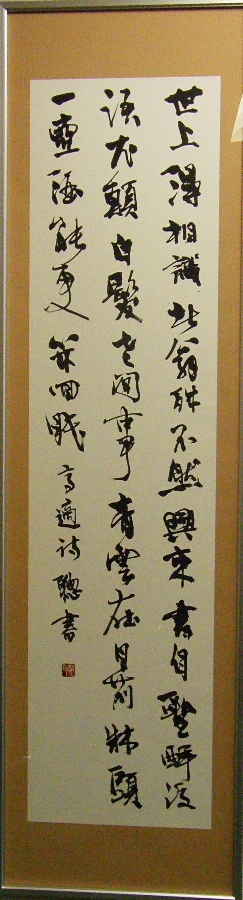 世上漫相識此翁殊不然興来書自聖醉後
語尤顛白髪老閑事青雲在目前牀頭
一壺酒能更幾回眠 高適詩 聰書